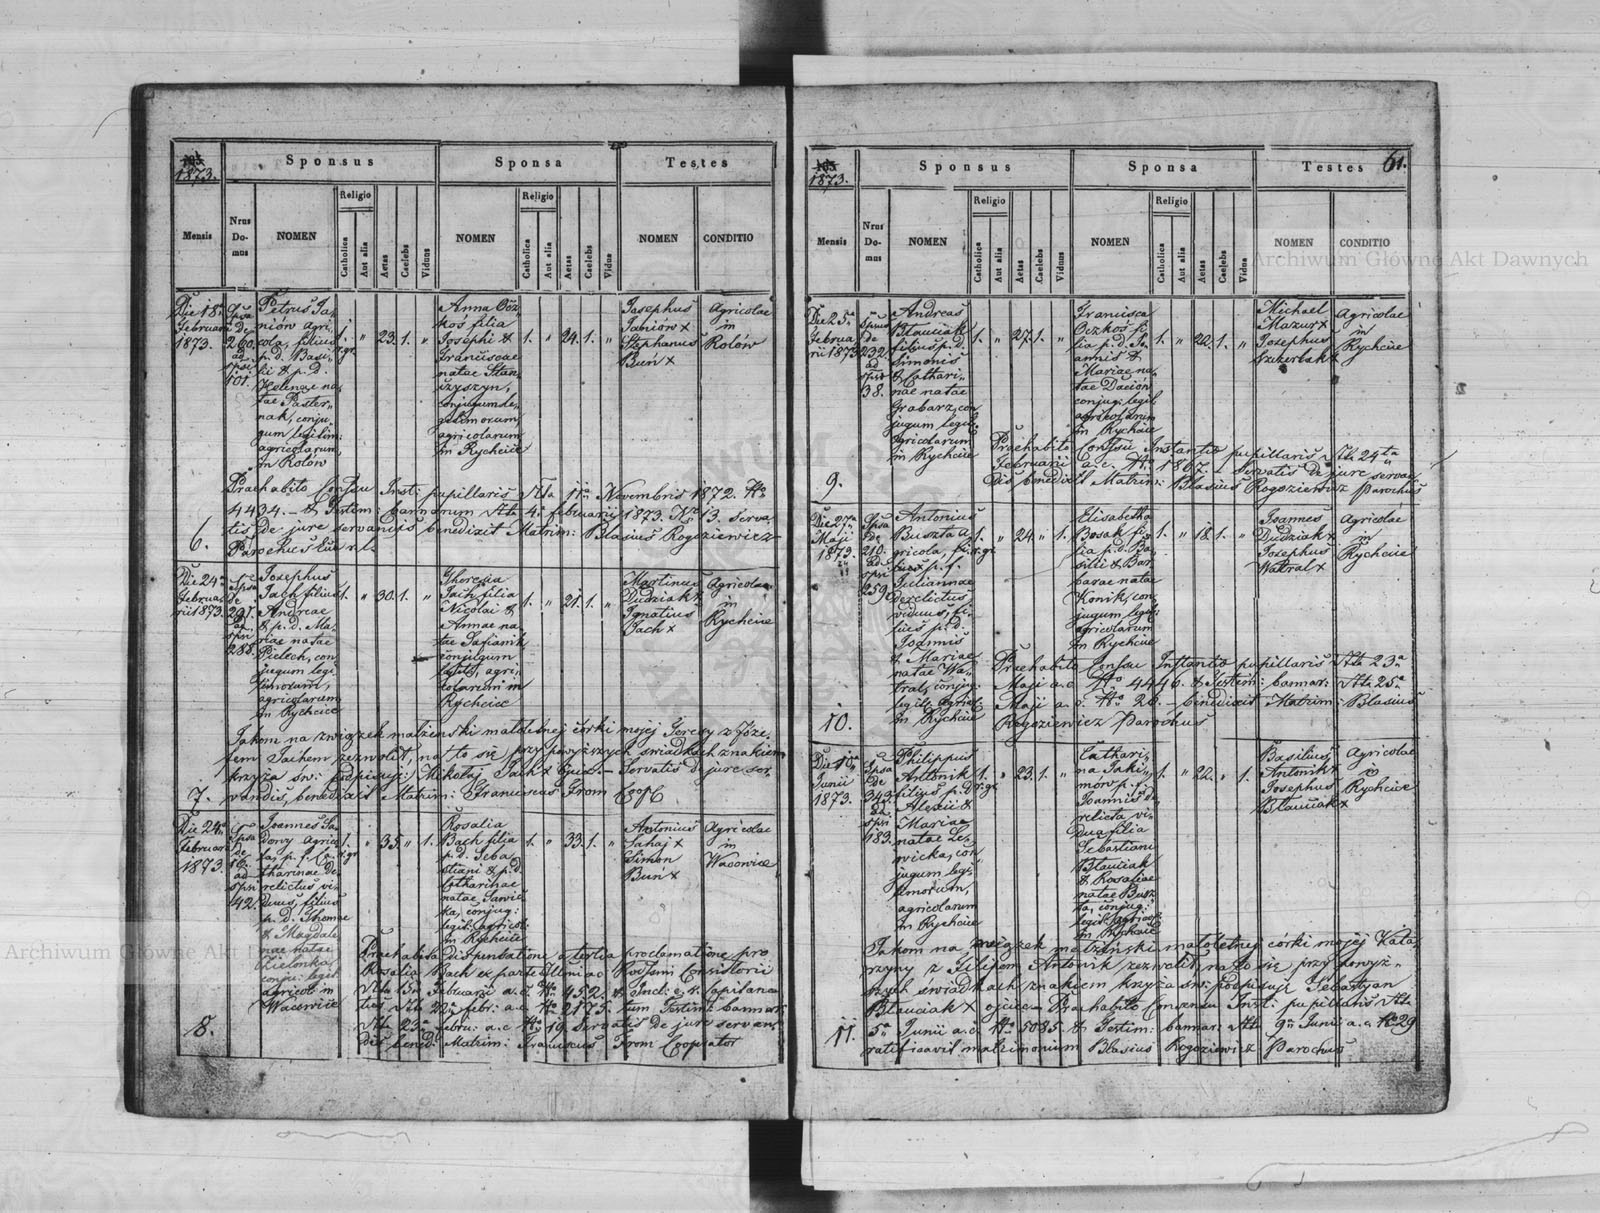 1873.
Sponsus
Sponsa
Testes
Mensis
Nrus Domus
NOMEN
Religio
Catholica
Aut alia
Aetas
Caelebs
Viduus
NOMEN
Religio
Catholica
Aut alia
Aetas
Caelebs
Viduus
NOMEN
CONDITIO
Die 18a
Februarii
1873.
Spsa
de
260.
ad
spsi
101.
Petrus Ja-
niów agri-
cola, filius
p. d. Basi-
lii & p. d.
Helenae na-
tae Paster-
nak, conju-
gum legitim:
agricolarum
in Rolów
1.
r. gr.
"
23.
1.
"
Anna Ocz-
koś filia
Josephi &
Franciscae
natae Stan-
czyszyn,
conjugum le-
gitimorum,
agricolarum
in Rychcice
1.
"
24.
1.
"
Josephus
Janiów x
Stephanus
Buń x
Agricolae
in
Rolów
Praehabito Consensu Inst: pupillaris dto 11a Novembris 1872. No
4434. & Testim: bannorum dto 4. februarii 1873. No 13. Serva-
tis de jure servandis benedixit Matrim: Blasius Rogoziewicz
6. Parochus r. l.
Die 24a
Februa-
rii 1873.
Spsa
de
291.
ad
spsi
288.
Josephus
Jach filius
Andreae
& p. d. Ma-
riae natae
Pielech, con-
jugum legi-
timorum,
agricolarum
in Rychcice
1.
"
30.
1.
"
Theresia
Jach filia
Nicolai &
Annae na-
tae Safianik
conjugum
legit, agri-
colarum in
Rychcice
1.
"
21.
1.
"
Martinus
Dudziak x
Ignatius
Jach x
Agricolae
in
Rychcice
Jakom na związek małżenski małoletnej córki mojej Teresy z Józe-
fem Jachem zezwolił, na to się przy powyższych świadkach znakiem
krzyża św: podpisuję Mikołaj Jach x Ojciec. Servatis de jure ser-
7. vandis, benedixit Matrim: Franciscus From Coop
Die 24a
Februarii
1873.
Spsa
de
16.
ad
spsi
42.
Joannes Sa-
dowy agrico-
la, p. f. Ca-
tharinae de-
relictus vi-
duus, filius
p. d. Thomae
& Magdale-
nae natae
Zielonka,
conju: legit
agricol: in
Wacowice
1.
r. gr
"
35.
"
1.
Rosalia
Bach filia
p. d. Seba-
stiani & p. d.
Catharinae
natae Sawic-
ka, conjug:
legit: agricol:
in Rychcice
1.
"
33.
1.
"
Antonius
Sahaj x
Simon
Buń x
Agricolae
in
Wacowice
Praehabita Dispensatione a tertia proclamatione pro
Rosalia Bach ex parte Illmi ac Rvdssmi Consistorii
dto 13a Februarii a. c. No 452. & Incl: c. k. Capitana-
tus dto 22a febr: a. c. No 2175. tum Testim: bannor:
dto 23a febru: a. c. No 19. Servatis de jure servan-
8. dis bened: Matrim: Franciscus From Cooperator
1873.
61.
Sponsus
Sponsa
Testes
Mensis
Nrus Domus
NOMEN
Religio
Catholica
Aut alia
Aetas
Caelebs
Viduus
NOMEN
Religio
Catholica
Aut alia
Aetas
Caelebs
Vidua
NOMEN
CONDITIO
Die 25a
Februa-
rii 1873
Spsus
de
232.
ad
spsi
38.
Andreas
Błauciak
filius p. d.
Simonis
& Cathari-
nae natae
Grabarz, con-
jugum legit:
agricolarum
in Rychcice
1.
"
27.
1.
"
Francisca
Oczkoś fi-
lia p. d. Jo-
annis &
Mariae na-
tae Dacion
conjug: legit
agricolarum
in Rychcice
1.
"
22.
1.
"
Michael
Mazur x
Josephus
Szczerbak x
Agricolae
in
Rychcice
Praehabito Consensu Instantiae pupillaris dto 24ta
Februarii a. c. No 1867. Servatis de jure servan-
9. dis benedixit Matrim: Blasius Rogoziewicz Parochus
Die 27a
Maji
1873.
Spsa
de
210.
ad
spsi
259.
Antonius
Buszta a-
gricola, p. f.
Juliannae
derelictus
viduus, fi-
lius p. d.
Joannis
& Mariae
natae Wa-
tral, conjug:
legit: agricol:
in Rychcice
1.
r. gr.
"
24.
"
1.
Elisabetha
Bosak fi-
lia p. d. Ba-
silii & Bar-
barae natae
Konik, con-
jugum legit:
agricolarum
in Rychcice
1.
"
18.
1.
"
Joannes
Dudziak x
Josephus
Watral x
Agricolae
in
Rychcice
Praehabito Consensu Instantiae pupillaris dto 23a
Maji a. c. No 4446. & Testim: bannor: dto 25a
Maji a. c. No 20. benedixit Matrim: Blasius
10. Rogoziewicz Parochus
Die 10a
Junii
1873.
Spsa
de
343.
ad
spsi
183.
Philippus
Antonik
filius p. d.
Alexii &
Mariae
natae Le-
wicka, con-
jugum legi-
timorum,
agricolarum
in Rychcice
1.
r. gr.
"
23.
1.
"
Cathari-
na Jaki-
mów p. f.
Joannis de-
relicta vi-
dua filia
Sebastiani
Błauciak
& Rosaliae
natae Busz-
ta, conjug:
legit: agricol:
in Rychcice
1.
"
22.
"
1.
Basilius
Antonik x
Josephus
Błauciak x
Agricolae
in
Rychcice
Jakom na związek małżeński małoletnej córki mojej Kata-
rzyny z Filipem Antonik zezwolił, na to się przy powyż-
szych świadkach znakiem krzyża św: podpisuję Sebastyan
Błauciak x ojciec. Praehabito Consensu Inst: pupillaris dto
5a Junii a. c. No 5085. & Testim: bannor: dto 9a Junii a. c. No 29
11. ratificavit matrimonium Blasius Rogoziewicz Parochus
Archiwum Główne Akt Dawnych
Archiwum Główne Akt Dawnych